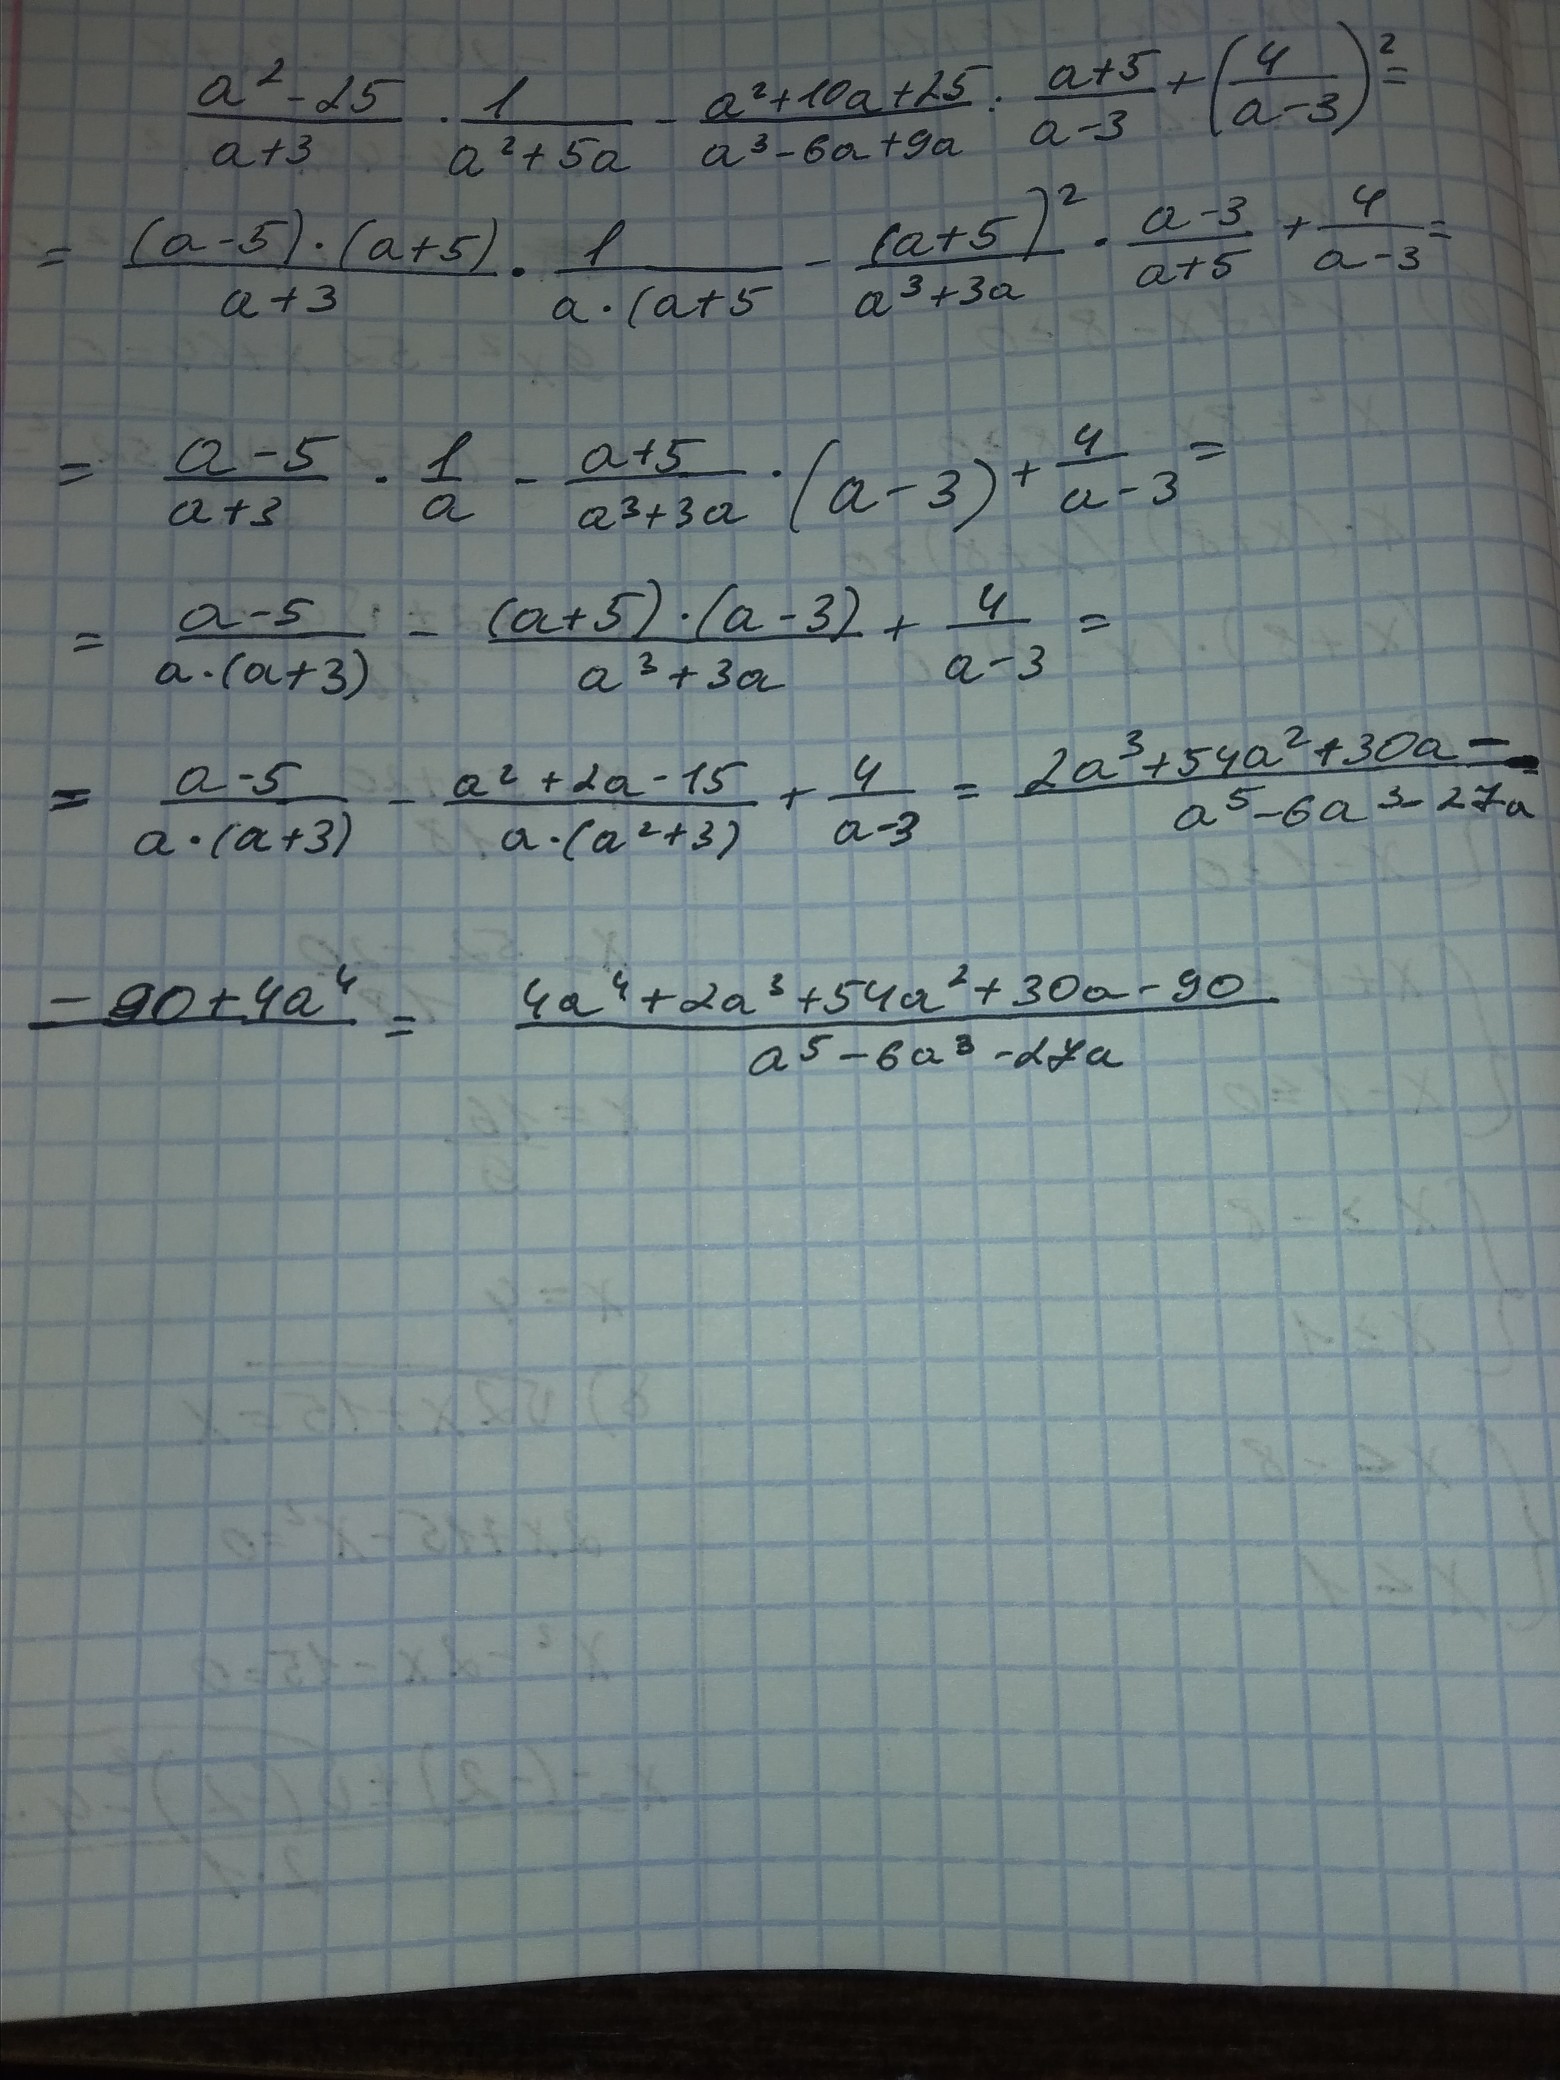 (a²-25)/(a+3) · 1/(a²+5a) - (a²+10a+25)/(a³-6a+9a) : (a+5)/(a-3) + (4/(a-3))² =
= ((a-5)·(a+5))/(a+3) · 1/(a·(a+5) - (a+5)²/(a³+3a) · (a-3)/(a+5) + 4/(a-3) =
= (a-5)/(a+3) · 1/a - (a+5)/(a³+3a) · (a-3) + 4/(a-3) =
= (a-5)/(a·(a+3)) - ((a+5)·(a-3))/(a³+3a) + 4/(a-3) =
= (a-5)/(a·(a+3)) - (a²+2a-15)/(a·(a²+3)) + 4/(a-3) = (2a³+54a²+30a-)/(a⁵-6a³-27a)
-90+4a⁴ = (4a⁴+2a³+54a²+30a-90)/(a⁵-6a³-27a)